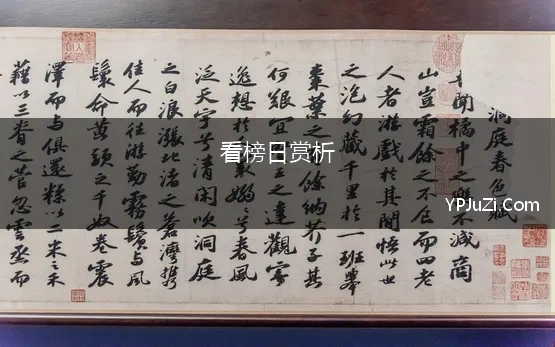 洞庭春色賦
聞橘中之樂不減商
山豈霜餘之不食而四老
人者游戲於其間悟此世
之泡幻藏千里於一班舉
棗葉之餘納芥子其
何艱宜王之達觀寄
逸想於嫋兮春風
泛天宇兮清閑吹洞庭
之白浪漲北渚之蒼灣携
佳人而往游勤霧鬢与風
鬟命黃頭之千奴卷震
澤而与俱還糅以二米之禾
藉以三脊之菅忽雲烝而
看榜日赏析
YPJuZi.Com